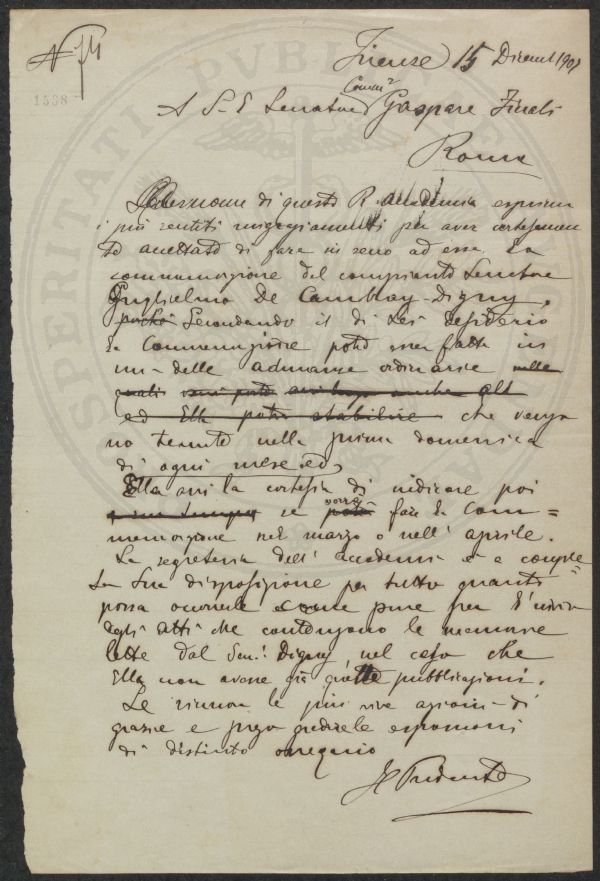 N 74
1538
Firenze 15 Dicemb 1907
A S. E. Senatore Comm.e Gaspare Finali
Roma
di questa R. Accademia esprimere
i più sentiti ringraziamenti per aver cortesemen
te accettato di fare in seno ad essa la
commemorazione del compianto Senatore
Guglielmo De Cambray-Digny,
poichè Secondando il di Lei desiderio
la Commemorazione potrà esser fatta in
una delle adunanze ordinarie nelle
quali
ed Ella potrà stabilire che vengo
no tenute nella prima domenica
di ogni mese ed
Ella avrà la cortesia di indicare poi
se potrà vorrà fare la Com=
memorazione nel marzo o nell'aprile.
La segreteria dell'accademia è a comple=
ta Sua disposizione per tutto quanto
possa occorrerle come pure per l'invio
degli atti che contengono le memorie
lette dal Sen. Digny nel caso che
Ella non avesse già quelle pubblicazioni.
Le rinnovo le più vive azioni di
grazie e prego gradire le espressioni
di distinto ossequio
Il Presidente